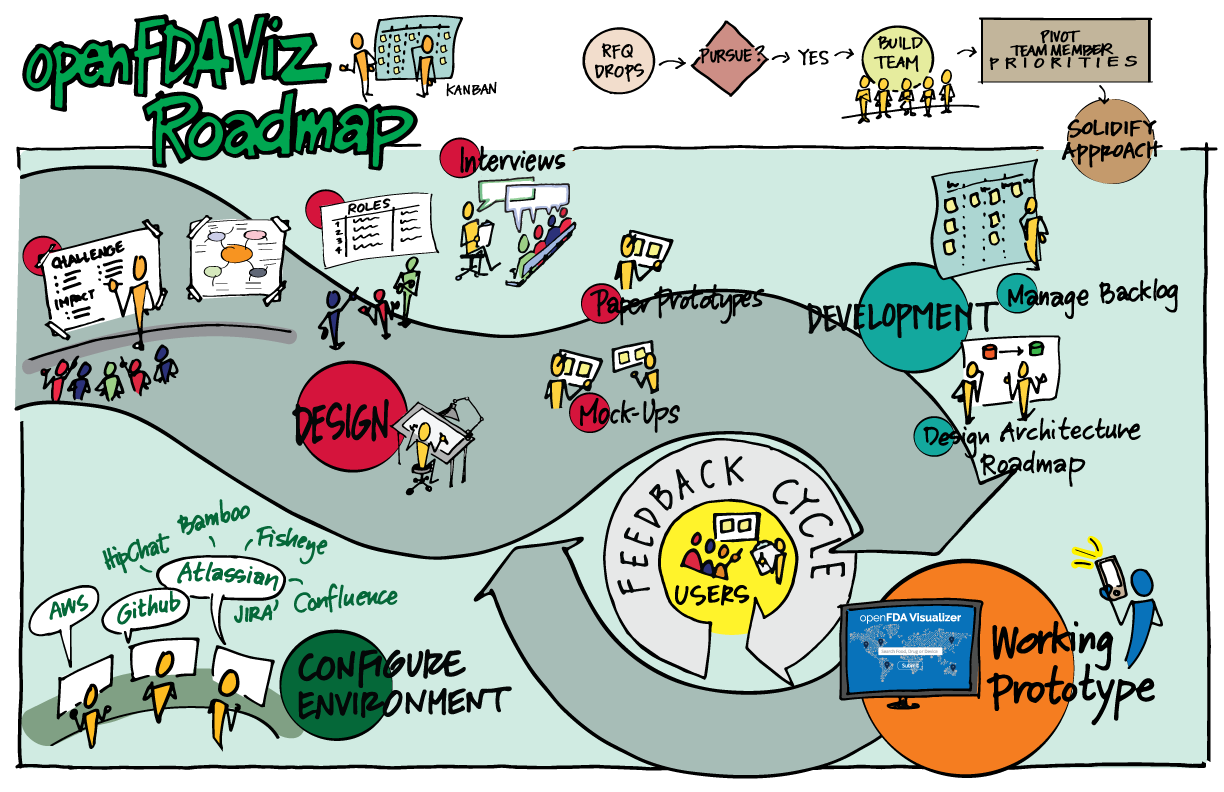 openFDAViz
Roadmap
KANBAN
RFQ
DROPS
PURSUE?
YES
BUILD
TEAM
PIVOT
TEAM MEMBER
PRIORITIES
SOLIDIFY
APPROACH
CHALLENGE
IMPACT
ROLES
1
2
3
4
Interviews
Paper Prototypes
Mock-Ups
DESIGN
DEVELOPMENT
Manage Backlog
Design Architecture
Roadmap
FEEDBACK CYCLE
USERS
HipChat
Bamboo
Fisheye
Atlassian
AWS
Github
JIRA
Confluence
CONFIGURE
ENVIRONMENT
openFDA Visualizer
Search Food, Drug or Device
Submit
Working
Prototype